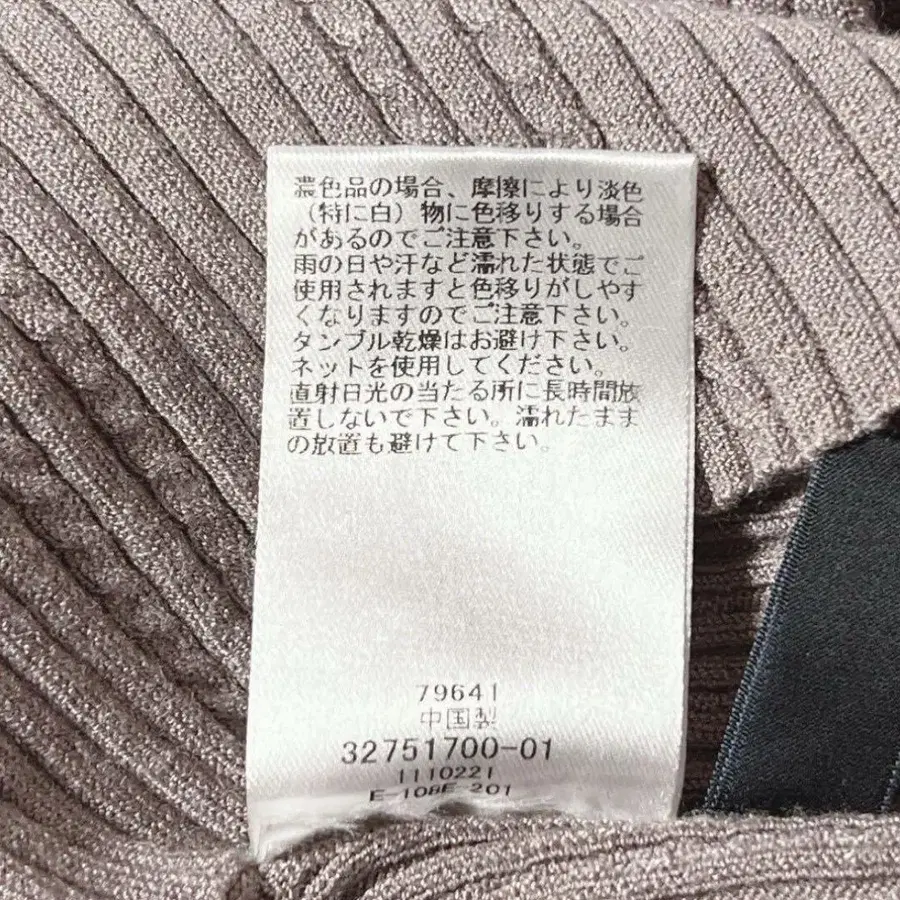 濃色品の場合、摩擦により淡色
（特に白）物に色移りする場合
があるのでご注意下さい。
雨の日や汗など濡れた状態でご
使用されますと色移りがしやす
くなりますのでご注意下さい。
タンブル乾燥はお避け下さい。
ネットを使用してください。
直射日光の当たる所に長時間放
置しないで下さい。濡れたまま
の放置も避けて下さい。
79641
中国製
32751700-01
1110221
E-108E-201